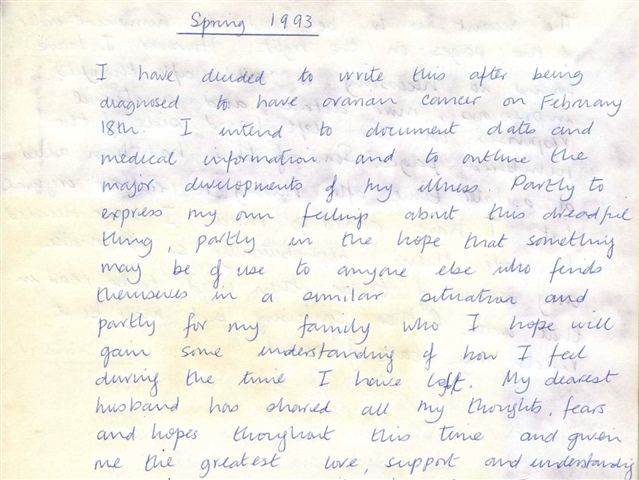 Spring 1993
I have decided to write this after being
diagnosed to have ovarian cancer on February
18th. I intend to document dates and
medical information and to outline the
major developments of my illness. Partly to
express my own feelings about this dreadful
thing, partly in the hope that something
may be of use to anyone else who finds
themselves in a similar situation and
partly for my family who I hope will
gain some understanding of how I feel
during the time I have left. My dearest
husband has shared all my thoughts, fears
and hopes thoughout this time and given
me the greatest love, support and understanding